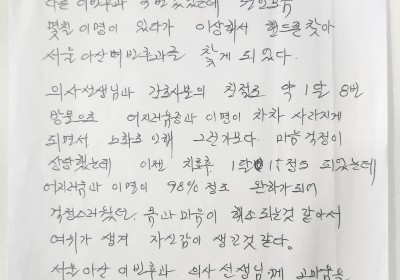 다른 이비인후과 두번 갔었는데
몇칠 이명이 있다가 이상해서 핸드폰 찾아
서울 아산 이비인후과를 찾게 되었다.
의사선생님과 간호사분의 친절로 약 1달 8번
방문으로 어지러움증과 이명이 차차 사라지게
되면서 노화로 인해 그런가보다. 마음 걱정이
상당했는데 이젠 치료후 1달 정도 되었는데
어지러움과 이명이 98% 정도 완화가 되어
걱정스러웠던 몸과 마음이 해소되는것 같아서
여유가 생겨 자신감이 생긴것 같다.
서울 아산 이비인후과 의사 선생님께 고마움을